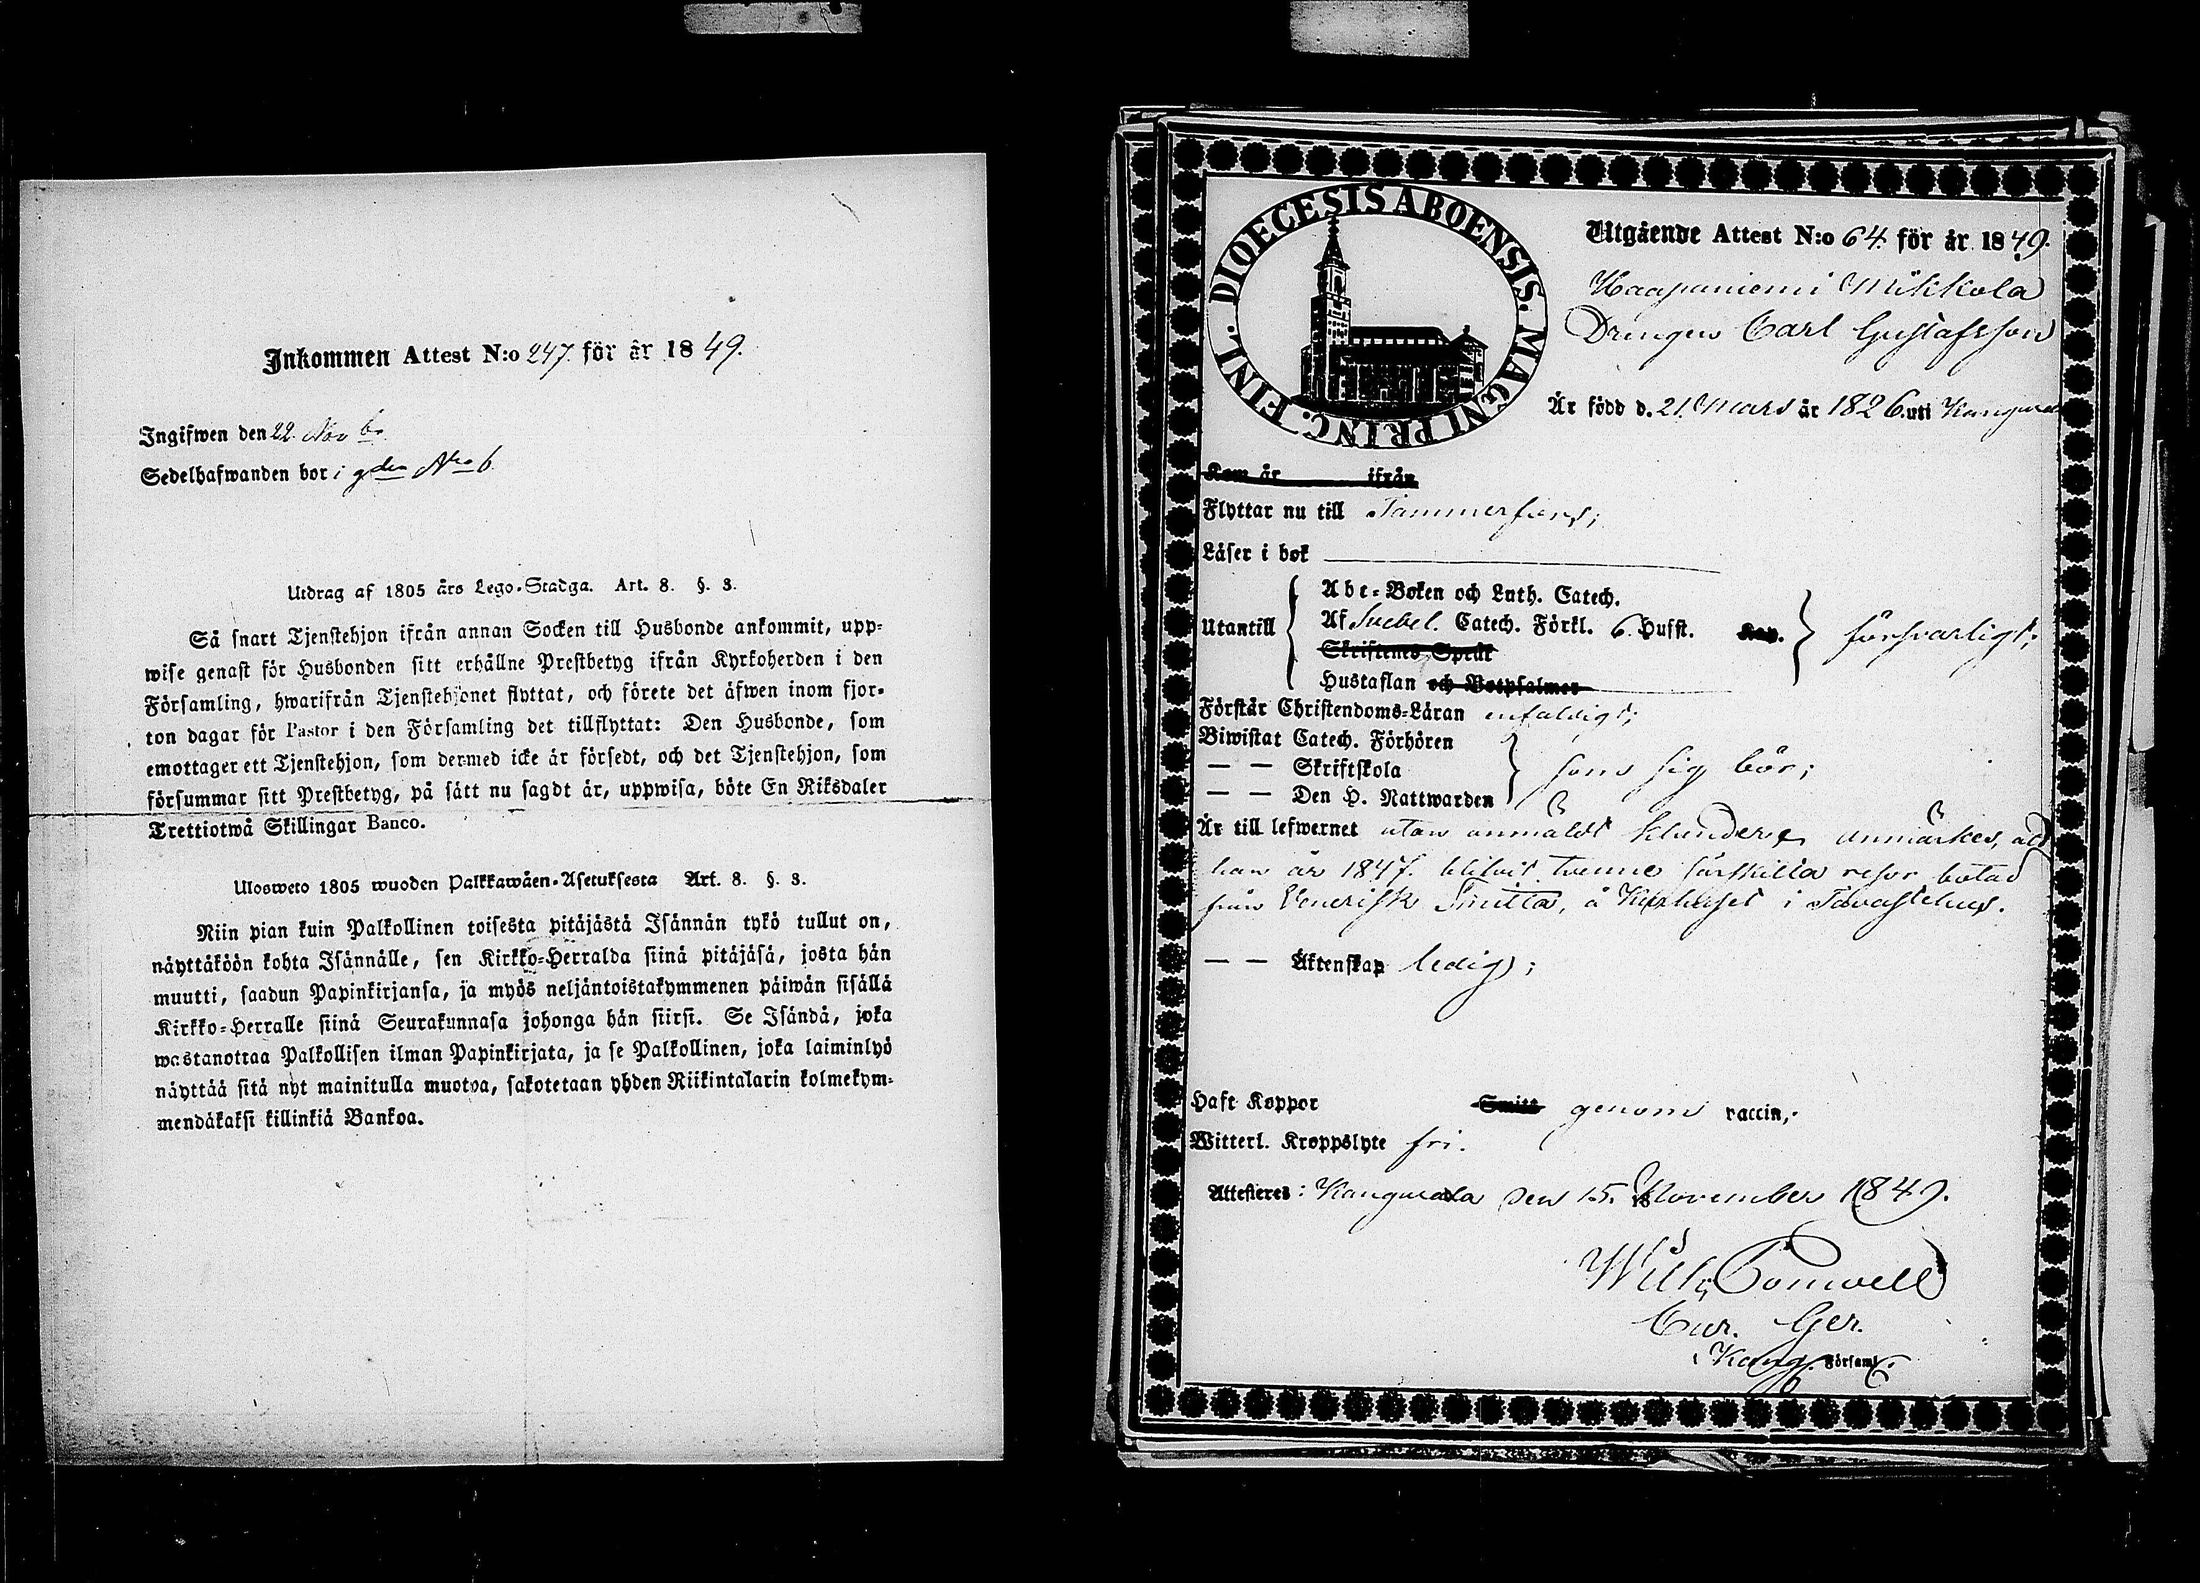 Inkommen Attest N:o 247. för år 1849.
Ingifwen den 22. Novbr.
Sedelhafwanden bor i gden No 6
Utdrag af 1805 års Lego-Stadga. Art. 8. §. 3.
Så snart Tjenstehjon ifrån annan Socken till Husbonde ankommit, upp-
wise genast för Husbonden sitt erhållne Prestbetyg ifrån Kyrkoherden i den
Församling, hwarifrån Tjenstehjonet flyttat, och förete det äfwen inom fjor-
ton dagar för Pastor i den Församling det tillflyttat: Den Husbonde, som
emottager ett Tjenstehjon, som dermed icke är försedt, och det Tjenstehjon, som
försummar sitt Prestbetyg, på sätt nu sagdt är, uppwisa, böte En Riksdaler
Trettiotwå Skillingar Banco.
Ulosweto 1805 wuoden Palkkawäen-Asetuksesta Art. 8. §. 3.
Niin pian kuin Palkollinen toisesta pitäjästä Isännän tykö tullut on,
näyttäköön kohta Isännälle, sen Kirkko-Herralda siinä pitäjäsä, josta hän
muutti, saadun Papinkirjansa, ja myös neljäntoistakymmenen päiwän sisällä
Kirkko-Herralle siinä Seurakunnasa johonga hän siirsi. Se Isändä, joka
wastanottaa Palkollisen ilman Papinkirjata, ja se Palkollinen, joka laiminlyö
näyttää sitä nyt mainitulla muotoa, sakotetaan yhden Riikintalarin kolmekym-
mendäkaksi killinkiä Bankoa.
DIOECESIS ABOENSIS. MAGNI PRINC. FINL.
Utgående Attest N:o 64. för år 1849.
Haapaniemi Mikkola
Drengen Carl Gustafsson
Är född d. 21. Mars år 1826. uti Kangasala
Kom år ifrån
Flyttar nu till Tammerfors;
Läser i bok
Utantill
Abc-Boken och Luth. Catech.
Af Svebel. Catech. Förkl. 6. Hufst. Kap.
Skriftenes Språk
Hustaflan och Botpsalmer
försvarligt;
Förstår Christendoms-Läran enfaldigt;
Biwistat Catech. Förhören
— — Skriftskola
— — Den H. Nattwarden
som sig bör;
Är till lefwernet utan anmäldt klander, anmärkes, att
han år 1847. blifvit tvenne särskilta resor botad
från Venerisk Smitta, å Kurhuset i Tavastehus.
— — Äktenskap ledig;
Haft Koppor Smitt genom vaccin,
Witterl. Kroppslyte fri.
Attesteres: Kangasala den 15. November 1849.
Wilh.
Cur. Ger.
i Kang. Församl.